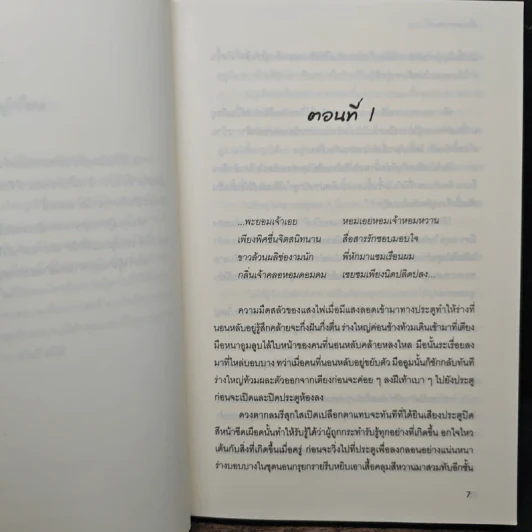 ตอนที่ 1
...พะยอมเจ้าเอย หอมเอยหอมเจ้าหอมหวาน
เพียงพิศชื่นจิตสนิทนาน สื่อสารรักขอบมอบใจ
ขาวล้วนผลิช่องามนัก พี่หักมาแซมเรือนผม
กลิ่นเจ้าคลอหอมดอมดม เชยชมเพียงนิดปลิดปลง...
ความมืดสลัวของแสงไฟเมื่อมีแสงลอดเข้ามาทางประตูทำให้ร่างที่
นอนหลับอยู่รู้สึกคล้ายจะกึ่งฝันกึ่งตื่น ร่างใหญ่ค่อนข้างท้วมเดินเข้ามาที่เตียง
มือหนาอูมลูบไล้ใบหน้าของคนที่นอนหลับคล้ายหลงใหล มือนั้นระเรื่อยลง
มาที่ไหล่บอบบาง ทว่าเมื่อคนที่นอนหลับอยู่ขยับตัว มืออูมนั้นก็ชักกลับทันที
ร่างใหญ่ท้วมผละตัวออกจากเตียงก่อนจะค่อย ๆ ลงฝีเท้าเบา ๆ ไปยังประตู
ก่อนจะเปิดและปิดประตูห้องลง
ดวงตากลมรีสุกใสเปิดเปลือกตาแทบจะทันทีที่ได้ยินเสียงประตูปิด
สีหน้าซีดเผือดนั้นทำให้รับรู้ได้ว่าผู้ถูกกระทำรับรู้ทุกอย่างที่เกิดขึ้น อกใจไหว
เต้นกับสิ่งที่เกิดขึ้นเมื่อครู่ ก่อนจะวิ่งไปที่ประตูเพื่อลงกลอนอย่างแน่นหนา
ร่างบอบบางในชุดนอนกรุยกรายรีบหยิบเอาเสื้อคลุมสีหวานมาสวมทับอีกชั้น
7